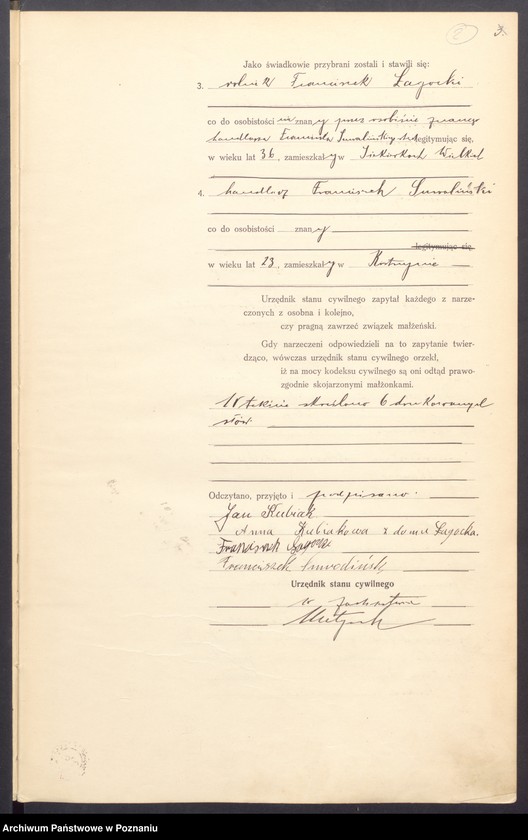 3.
Jako świadkowie przybrani zostali i stawili się:
3. rolnik Franciszek Łagocki
co do osobistości nie znany przez osobiście znanego
handlarza Franciszka legitymując się,
w wieku lat 36, zamieszkały w
4. handlarz Franciszek
co do osobistości znany
legitymując się
w wieku lat 23, zamieszkały w Kostrzynie
Urzędnik stanu cywilnego zapytał każdego z narze-
czonych z osobna i kolejno,
czy pragną zawrzeć związek małżeński.
Gdy narzeczeni odpowiedzieli na to zapytanie twier-
dząco, wówczas urzędnik stanu cywilnego orzekł,
iż na mocy kodeksu cywilnego są oni odtąd prawo-
zgodnie skojarzonymi małżonkami.
W tekście skreślono 6 drukowanych
słów.
Odczytano, przyjęto i podpisano.
Jan Kubiak
Anna Kubiakowa z domu Łagocka.
Franciszek Łagocki
Franciszek
Urzędnik stanu cywilnego
w zastępstwie
Archiwum Państwowe w Poznaniu